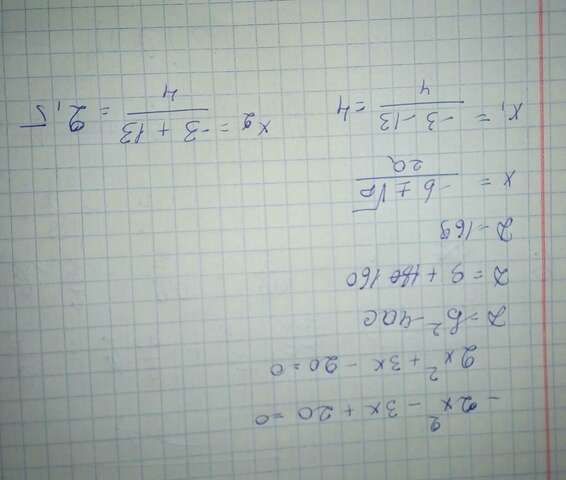 -2x² - 3x + 20 = 0
2x² + 3x - 20 = 0
D = b² - 4ac
D = 9 + 160
D - 169
x = (-b ± √D) / 2a
x₁ = (-3 - 13) / 4 = 4 x₂ = (-3 + 13) / 4 = 2,5